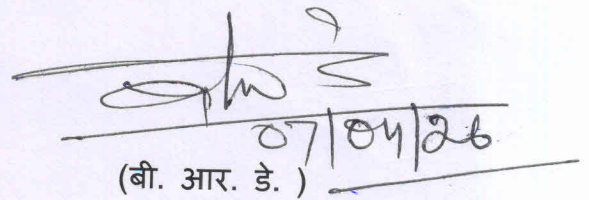 07/04/26
(बी. आर. डे. )